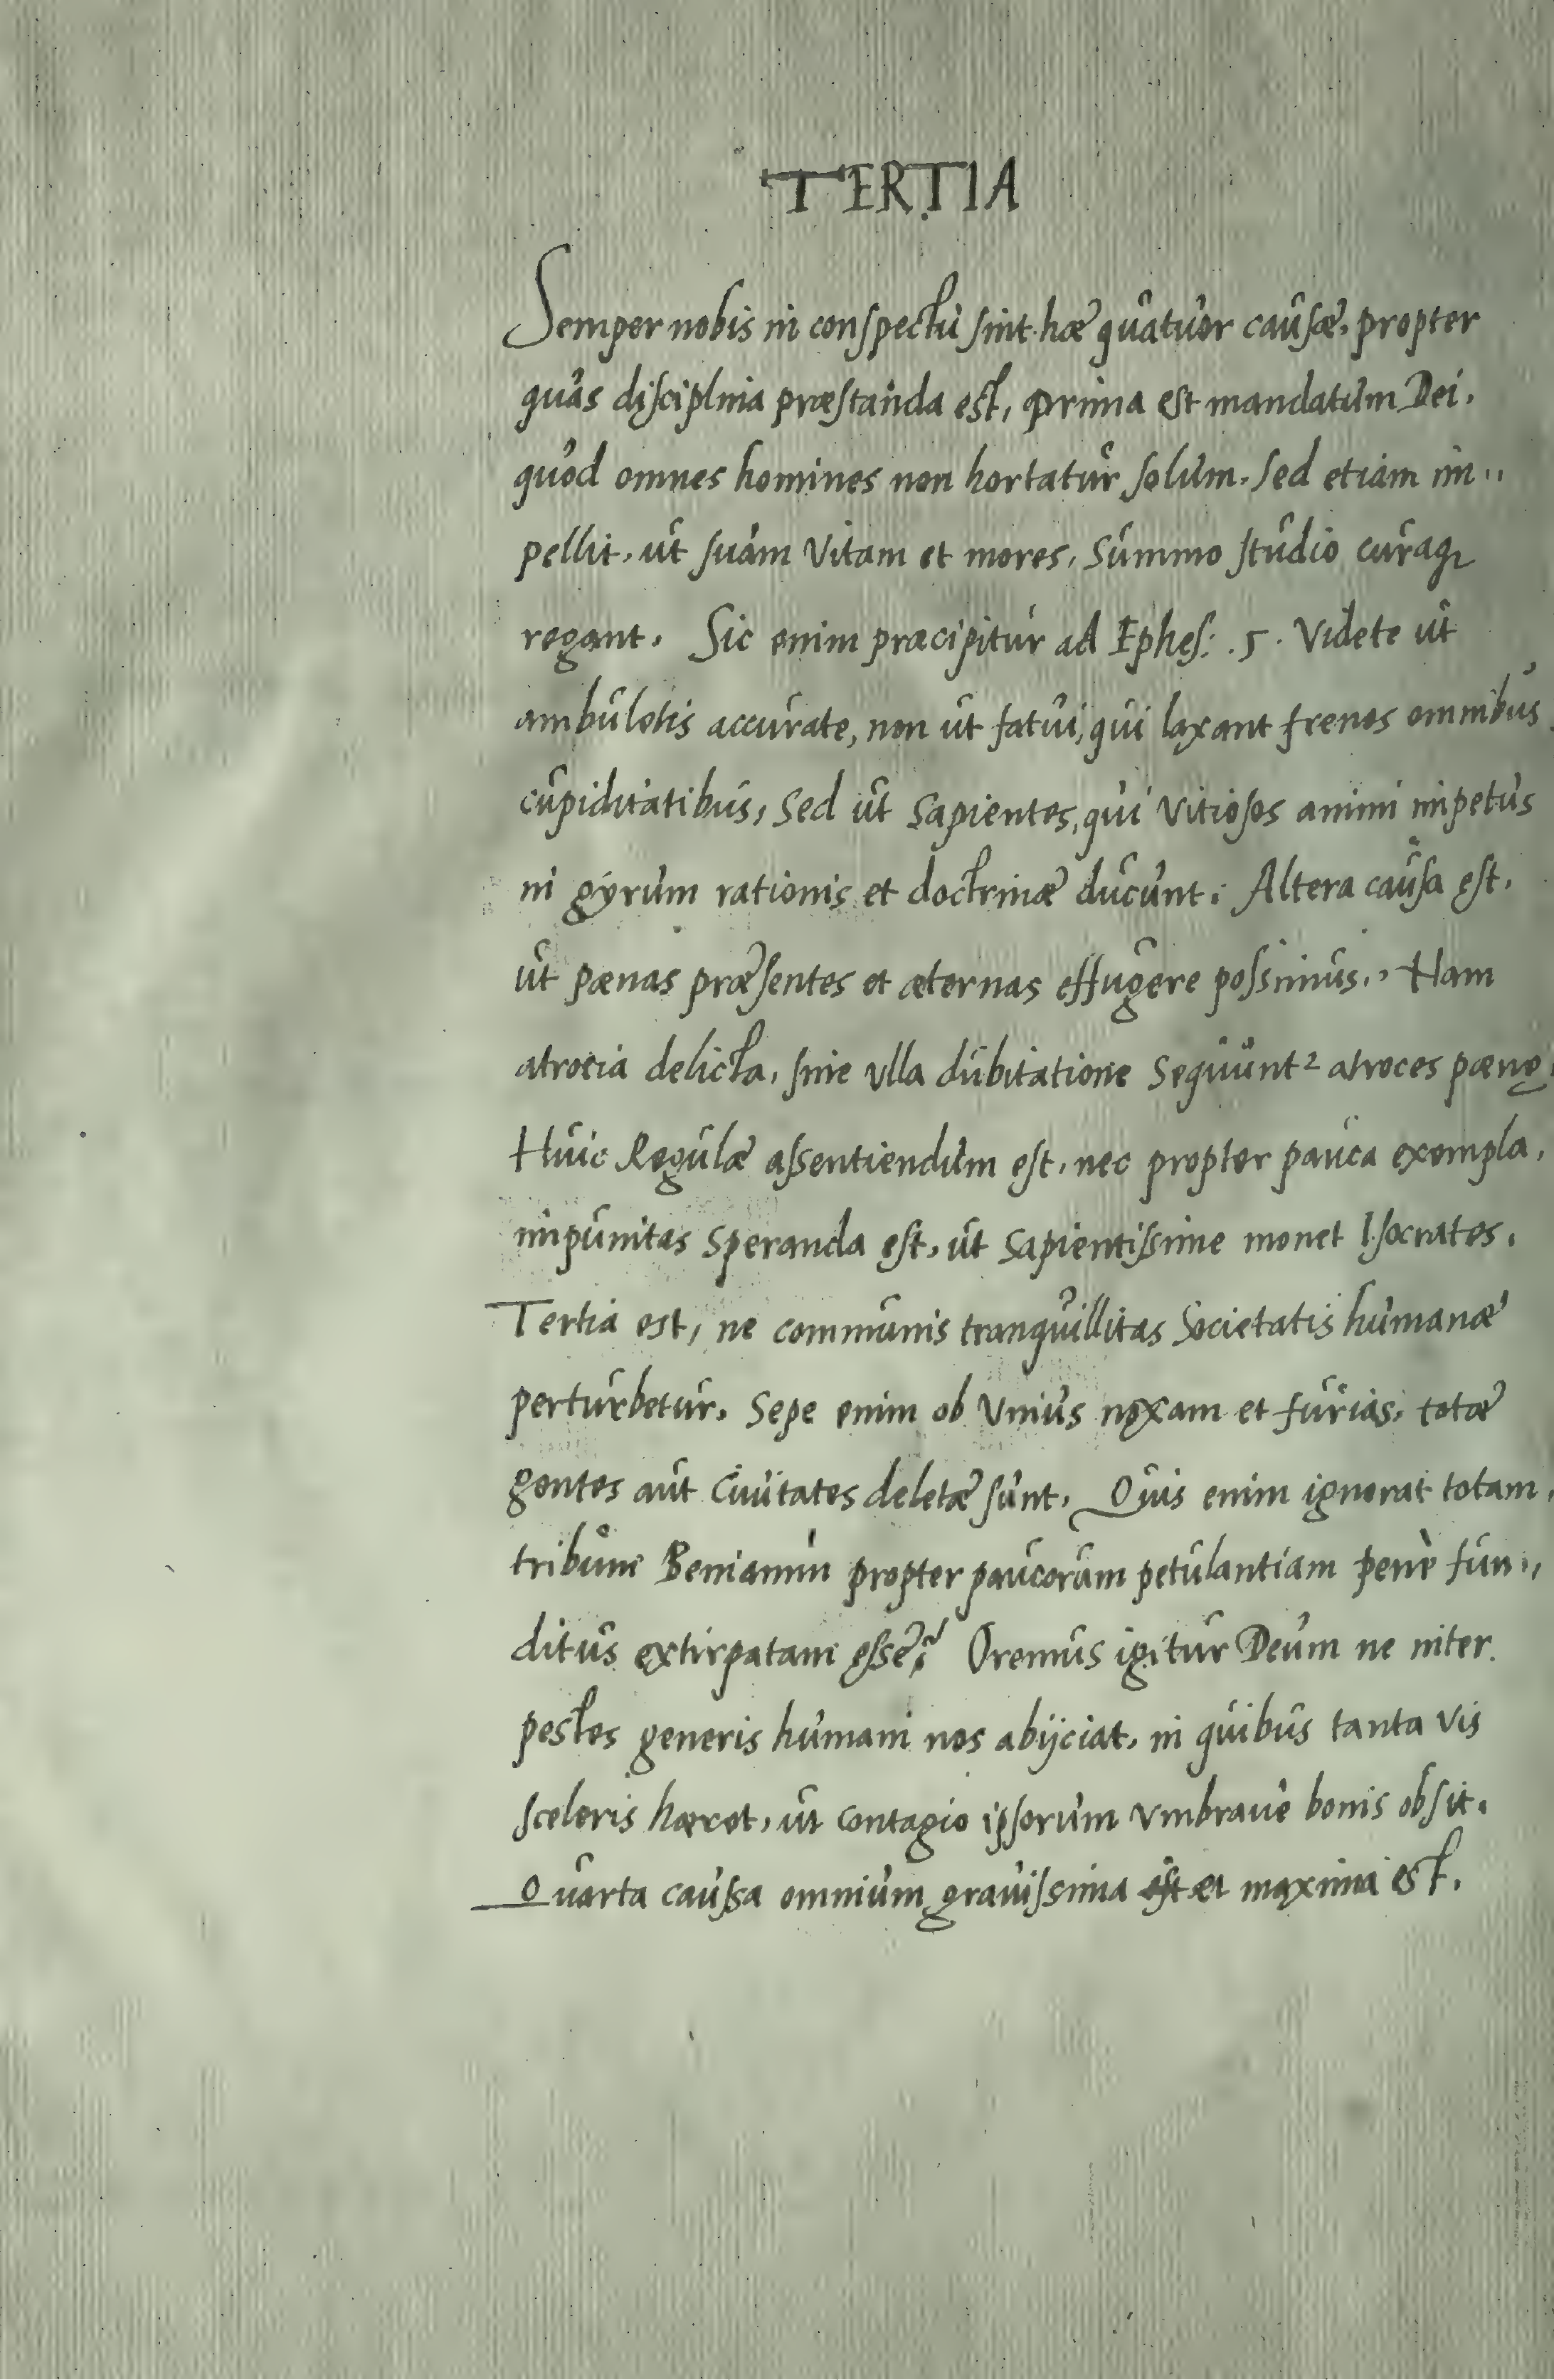 TERTIA
Semper nobis in conspectu sint hæ quatuor causæ, propter
quas disciplina præstanda est, prima est mandatum Dei,
quod omnes homines non hortatur solum, sed etiam im,,
pellit, ut suam Vitam et mores, Summo studio curaq;
regant. Sic enim præcipitur ad Ephes: .5. Videte ut
ambuletis accurate, non ut fatui, qui laxant frenos omnibus
cupiditatibus, Sed ut Sapientes, qui Vitiosos animi impetus
in gyrum rationis et doctrinæ ducunt. Altera causa est,
ut pænas præsentes et æternas effugere possimus. Nam
atrocia delicta, sine ulla dubitatione Sequunt² atroces pænę
Huic Regulæ assentiendum est, nec propter pauca exempla,
impunitas Speranda est, ut Sapientissime monet Isocrates.
Tertia est, ne communis tranquillitas Societatis humanæ
perturbetur, Sepe enim ob Vnius noxam et furias, totæ
gentes aut Ciuitates deletæ sunt. Quis enim ignorat totam
tribum Beniamin propter paucorum petulantiam penè fun,,
ditus extirpatam esse? Oremus igitur Deum ne inter
pestes generis humani nos abijciat, in quibus tanta vis
sceleris hæret, ut contagio ipsorum Vmbraue bonis obsit.
Quarta causa omnium grauissima est et maxima est.